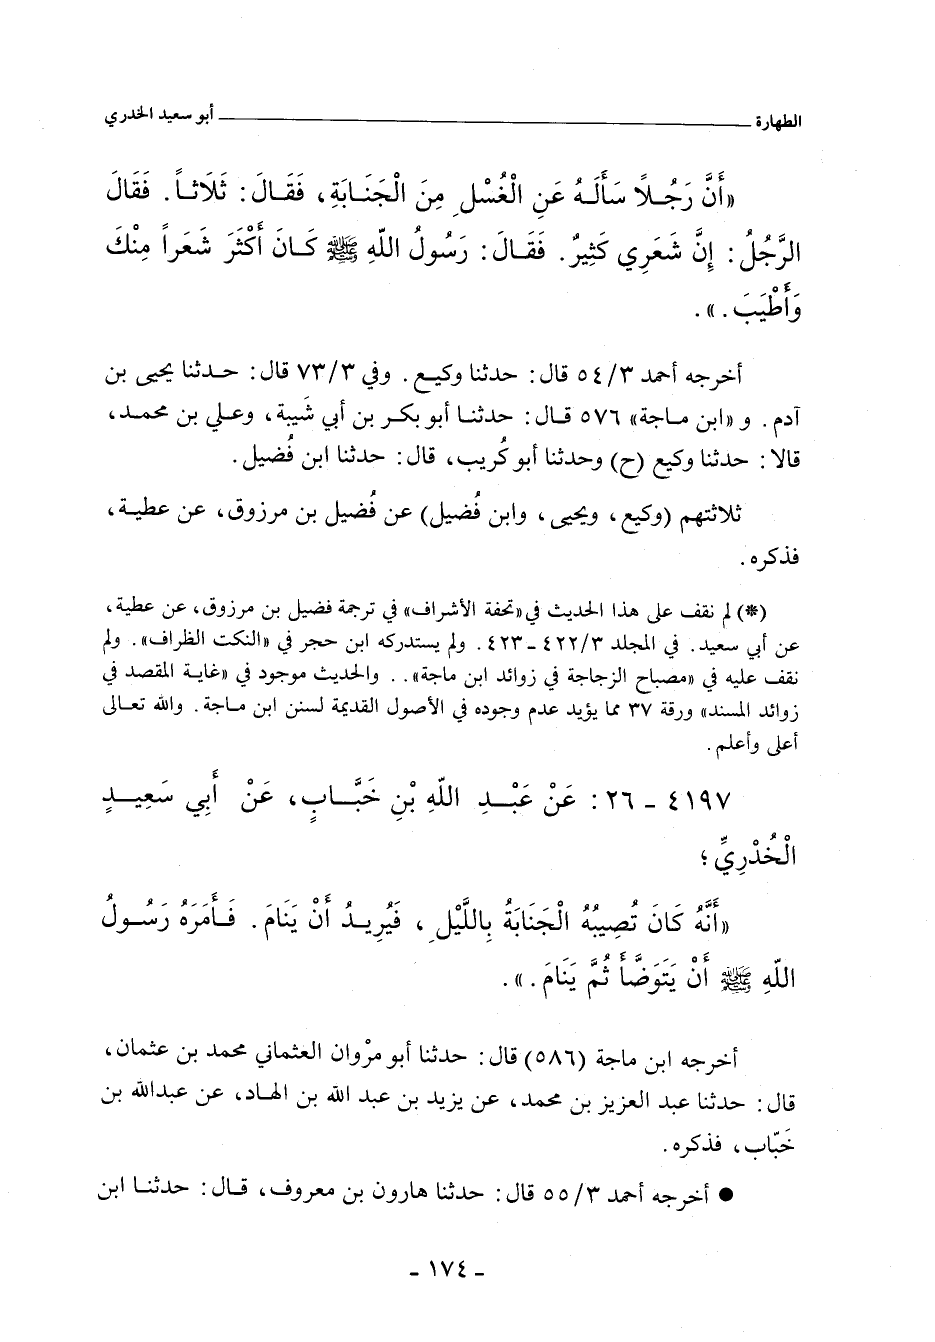 الطهارة ــــــــــــــــــــ أبو سعيد الخدري
«أَنَّ رَجُـلاً سَأَلَـهُ عَنِ الْغُسْلِ مِنَ الْجَنَـابَةِ، فَقَـالَ: ثَلَاثـاً. فَقَالَ
الرَّجُلُ: إِنَّ شَعَرِي كَثِيرٌ. فَقَـالَ: رَسُولُ اللّهِ ﷺ كَـانَ أَكْثَرَ شَعَراً مِنْكَ
وَأَطْيَبَ.».
أخرجه أحمد ٥٤/٣ قال: حدثنا وكيـع. وفي ٧٣/٣ قال: حـدثنا يحيى بن
آدم. و «ابن مـاجة» ٥٧٦ قـال: حدثنـا أبو بكـر بن أبي شَيبة، وعـلي بن محمـد،
قالا: حدثنا وكيع (ح) وحدثنا أبو كُريب، قال: حدثنا ابن فُضيل.
ثلاثتهم (وكيع، ويحيى، وابن فُضيل) عن فُضيل بن مرزوق، عن عطيـة،
فذكره.
(*) لم نقف على هذا الحديث في «تحفة الأشراف» في ترجمة فضيل بن مرزوق، عن عطية،
عن أبي سعيد. في المجلد ٤٢٢/٣ - ٤٢٣. ولم يستدركه ابن حجر في «النكت الظراف». ولم
نقف عليه في «مصباح الزجاجة في زوائد ابن ماجة».. والحديث موجود في «غايـة المقصد في
زوائد المسند» ورقة ٣٧ مما يؤيد عدم وجوده في الأصول القديمة لسنن ابن مـاجة. والله تعـالى
أعلى وأعلم.
٤١٩٧ - ٢٦: عَنْ عَبْـدِ اللّهِ بْنِ خَبَّـابٍ، عَنْ أَبِي سَعِيـدٍ
الْخُدْرِيِّ؛
«أَنَّهُ كَانَ تُصِيبُهُ الْجَنَابَةُ بِاللَّيْلِ، فَيُرِيـدُ أَنْ يَنَامَ. فَـأَمَرَهُ رَسُـولُ
اللّهِ ﷺ أَنْ يَتَوَضَّأَ ثُمَّ يَنَامَ.».
أخرجه ابن ماجة (٥٨٦) قال: حدثنا أبو مرْوان العثماني محمد بن عثمان،
قال: حدثنا عبد العزيز بن محمد، عن يزيد بن عبد الله بن الهـاد، عن عبدالله بن
خَبّاب، فذكره.
● أخرجه أحمد ٥٥/٣ قال: حدثنا هارون بن معروف، قـال: حدثنـا ابن
- ١٧٤ -